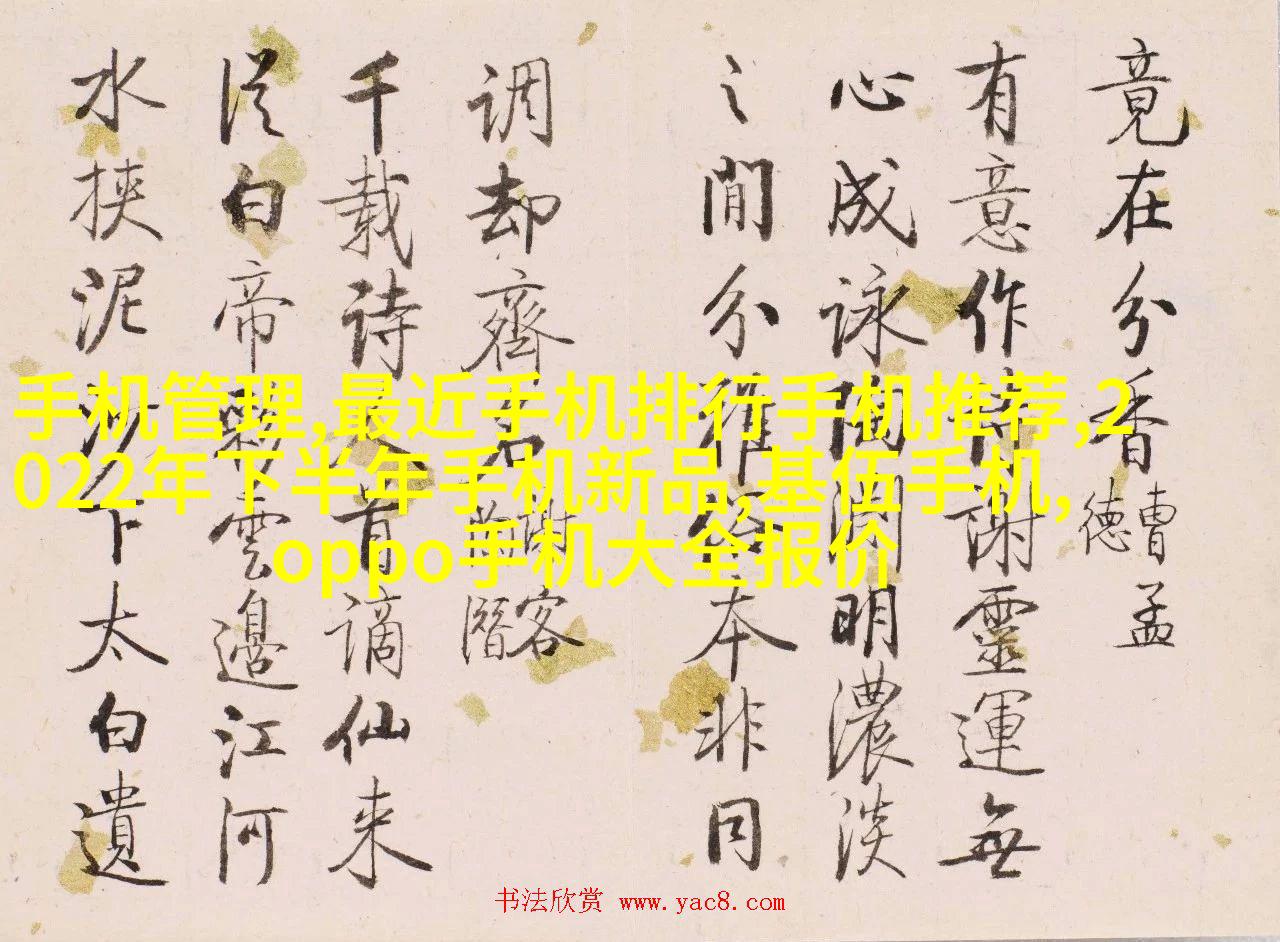 竟在分香
曹孟
德
有意作谢靈運無
心成咏陶渊明濃淡
之間分雅俗本非同
调却齊名
谢客
潛
千载诗人首谪仙来
從白帝彩雲邊江河
水挟泥沙下太白遺
手机管理,最近手机排行手机推荐,2
022年下半年手机新品,基伍手机,
oppo手机大全报价
书法欣赏 www.yac8.com